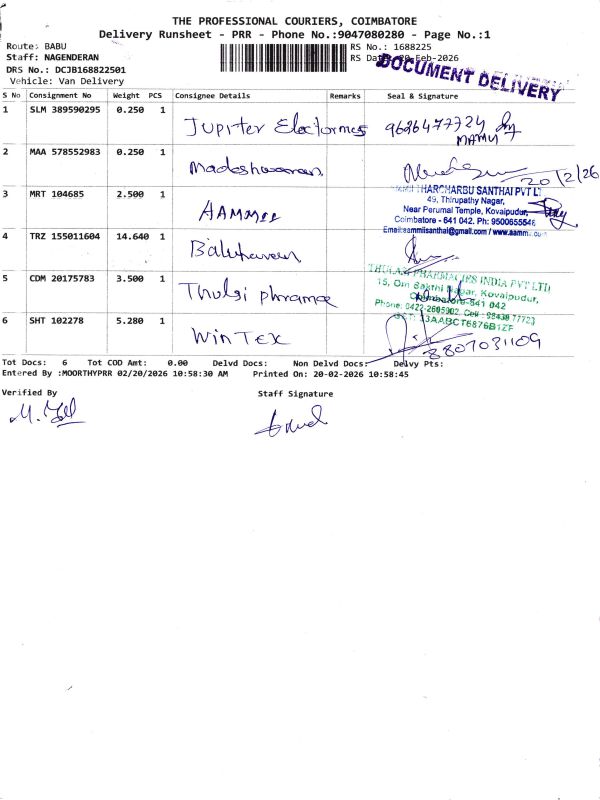 THE PROFESSIONAL COURIERS, COIMBATORE
Delivery Runsheet - PRR - Phone No.:9047080280 - Page No.:1
Route: BABU
RS No.: 1688225
Staff: NAGENDERAN
RS Date: 20-Feb-2026
DOCUMENT DELIVERY
DRS No.: DCJB168822501
Vehicle: Van Delivery
S No Consignment No Weight PCS Consignee Details Remarks Seal & Signature
1 SLM 389590295 0.250 1 Jupiter Electormes 9686477724
MAMU
2 MAA 578552983 0.250 1 Madeshwaran
20/2/26
3 MRT 104685 2.500 1 AAMMII
HARCHARBU SANTHAI PVT LT
49, Thirupathy Nagar,
Near Perumal Temple, Kovaipudur,
Coimbatore - 641 042. Ph: 9500655548
Email:aammiisanthai@gmail.com / www.aammi
4 TRZ 155011604 14.640 1
5 CDM 20175783 3.500 1 Thulsi phrama
PHARMACIES INDIA PVT LTD
15, Om Sakthi Nagar, Kovaipudur,
Coimbatore-641 042
Phone: 0422-2605902, Cell: 98439 77723
6 SHT 102278 5.280 1 WINTEX
8807031109
Tot Docs: 6 Tot COD Amt: 0.00 Delvd Docs: Non Delvd Docs: Delvy Pts:
Entered By :MOORTHYPRR 02/20/2026 10:58:30 AM Printed On: 20-02-2026 10:58:45
Verified By
Staff Signature